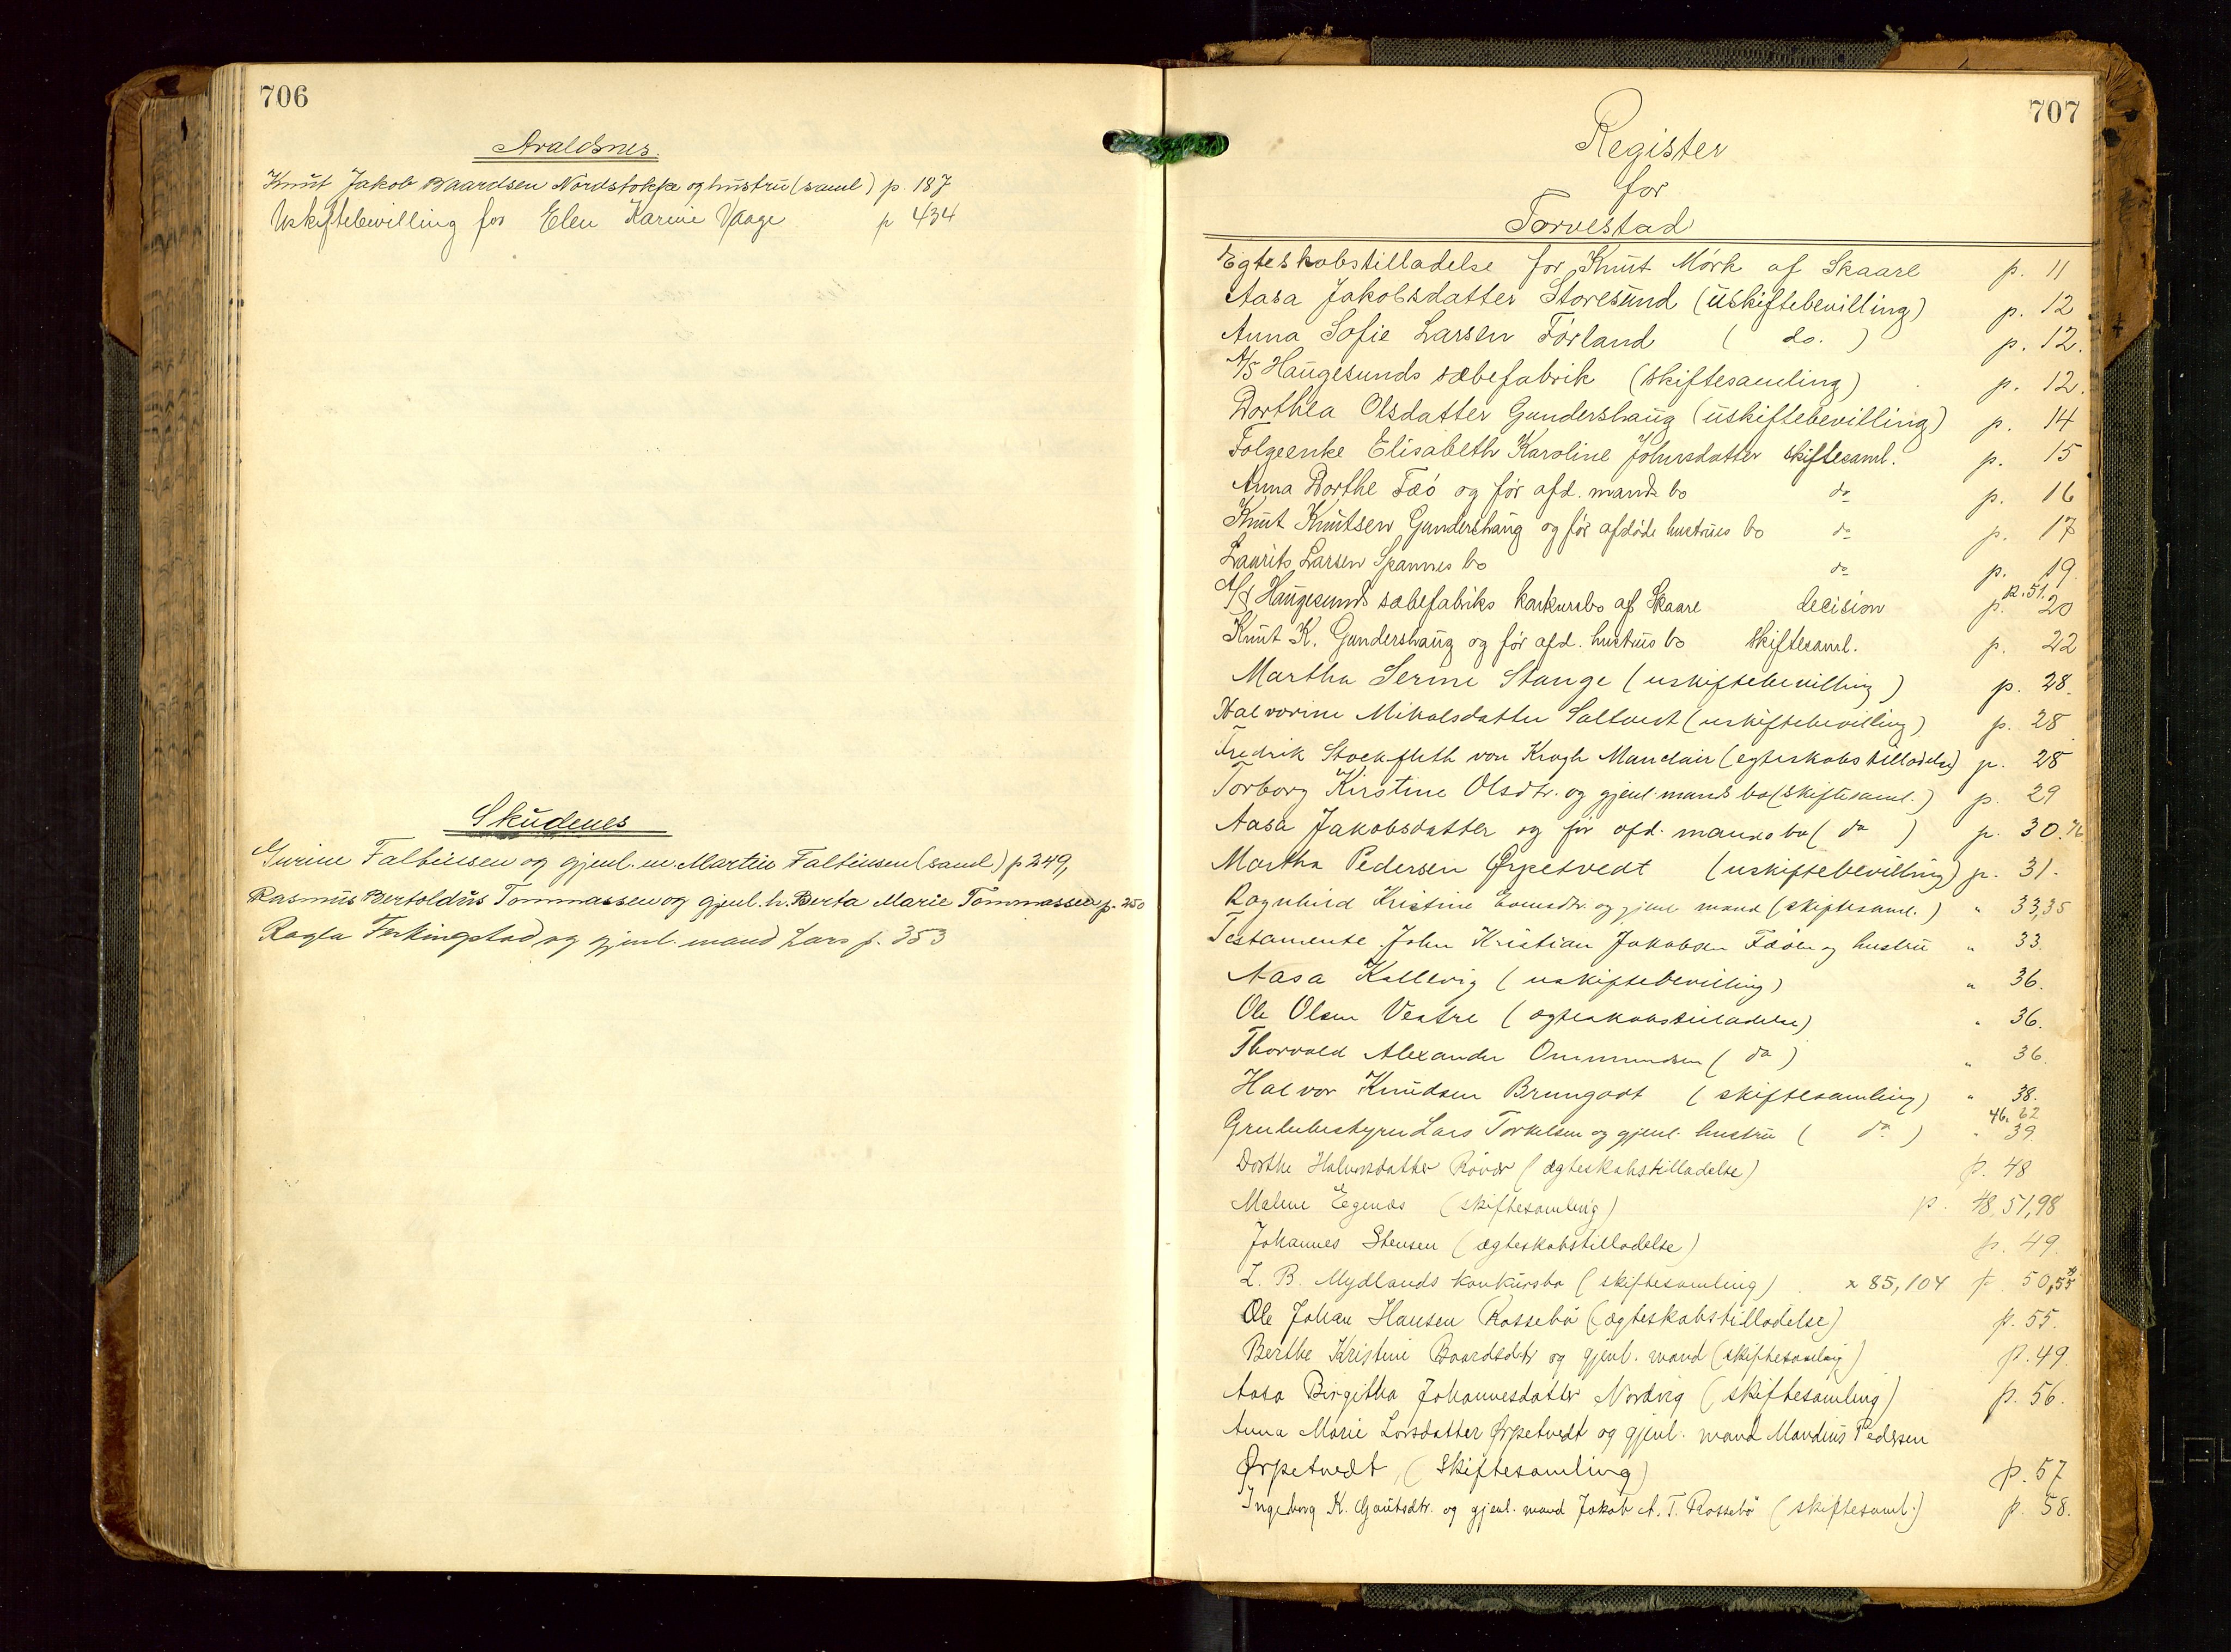 706
Avaldsnes.
Knut Jakob Baardsen Nordstokke og hustru (saml) p. 187
Uskiftebevilling for Elen Karine Vaage p 434
Skudenes
Gurine Falbinsen og gjenl. m Martin Falbinsen (saml) p 249,
Rasmus Bertoldus Tommassen og gjenl. h. Berta Marie Tommassen p. 250
Ragla Ferkingstad og gjenl. mand Lars p. 353
707
Register
for
Torvestad
Egteskabstilladelse for Knut Mørk af Skaare p. 11
Aasa Jakobsdatter Storesund (uskiftebevilling) p. 12
Anna Sofie Larsen Førland ( do. ) p. 12.
A/S Haugesunds sæbefabrik (skiftesamling) p. 12.
Dorthea Olsdatter Gundershaug (uskiftebevilling) p. 14
Følgeenke Elisabeth Karoline Johnsdatter skiftesaml. p. 15
Anna Dorthe Fæø og før afd. mands bo do p. 16
Knut Knutsen Gundershaug og før afdøde hustrues bo do p. 17
Laurits Larsen Spannes bo do p. 19.
A/S Haugesunds sæbefabriks konkursbo af Skaare decision p. 20 p. 51.
Knut K. Gundershaug og før afd. hustrus bo skiftesaml. p. 22
Martha Serine Stange (uskiftebevilling) p. 28.
Halvorine Mikalsdatter Saltvedt (uskiftebevilling) p. 28
Fredrik Stockfleth von Krogh Manclair (egteskabstilladelse) p. 28
Torborg Kirstine Olsdtr. og gjenl. mands bo (skiftesaml.) p. 29
Aasa Jakobsdatter og før afd. mands bo ( do ) p. 30.
Martha Pedersen Ørpetvedt (uskiftebevilling) p. 31.
Ragnhild Kristine og gjenl mand (skiftesaml.) " 33,35
Testamente John Kristian Jakobsen Fæøen og hustru " 33.
Aasa Kallevig (uskiftebevilling) " 36.
Ole Olsen Vestre (ægteskabstilladelse) " 36.
Thorvald Alexander Ommundsen ( do ) " 36.
Halvor Knudsen Brungodt (skiftesamling) " 38.
Grubebestyrer Lars Torkelsen og gjenl. hustru ( do ) " 39. 46. 62
Dorthe Halvorsdatter Røvær (ægteskabstilladelse) p. 48
Malene Egenæs (skiftesamling) p. 48,51,98
Johannes Stensen (ægteskabstilladelse) p. 49.
L. B. Mydlands konkursbo (skiftesamling) x 85, 104 p. 50,55
Ole Johan Hansen Rossebø (ægteskabstilladelse) p. 55.
Berthe Kristine Baardsdtr og gjenl. mand (skiftesamling) p. 49.
Aasa Birgitha Johannesdatter Nordvig (skiftesamling) p. 56.
Anna Marie Larsdatter Ørpetvedt og gjenl. mand Mandius Pedersen
Ørpetvedt (skiftesamling) p. 57
Ingeborg K. Gautsdtr. og gjenl. mand Jakob A. T. Rossebø (skiftesaml.) p. 58.